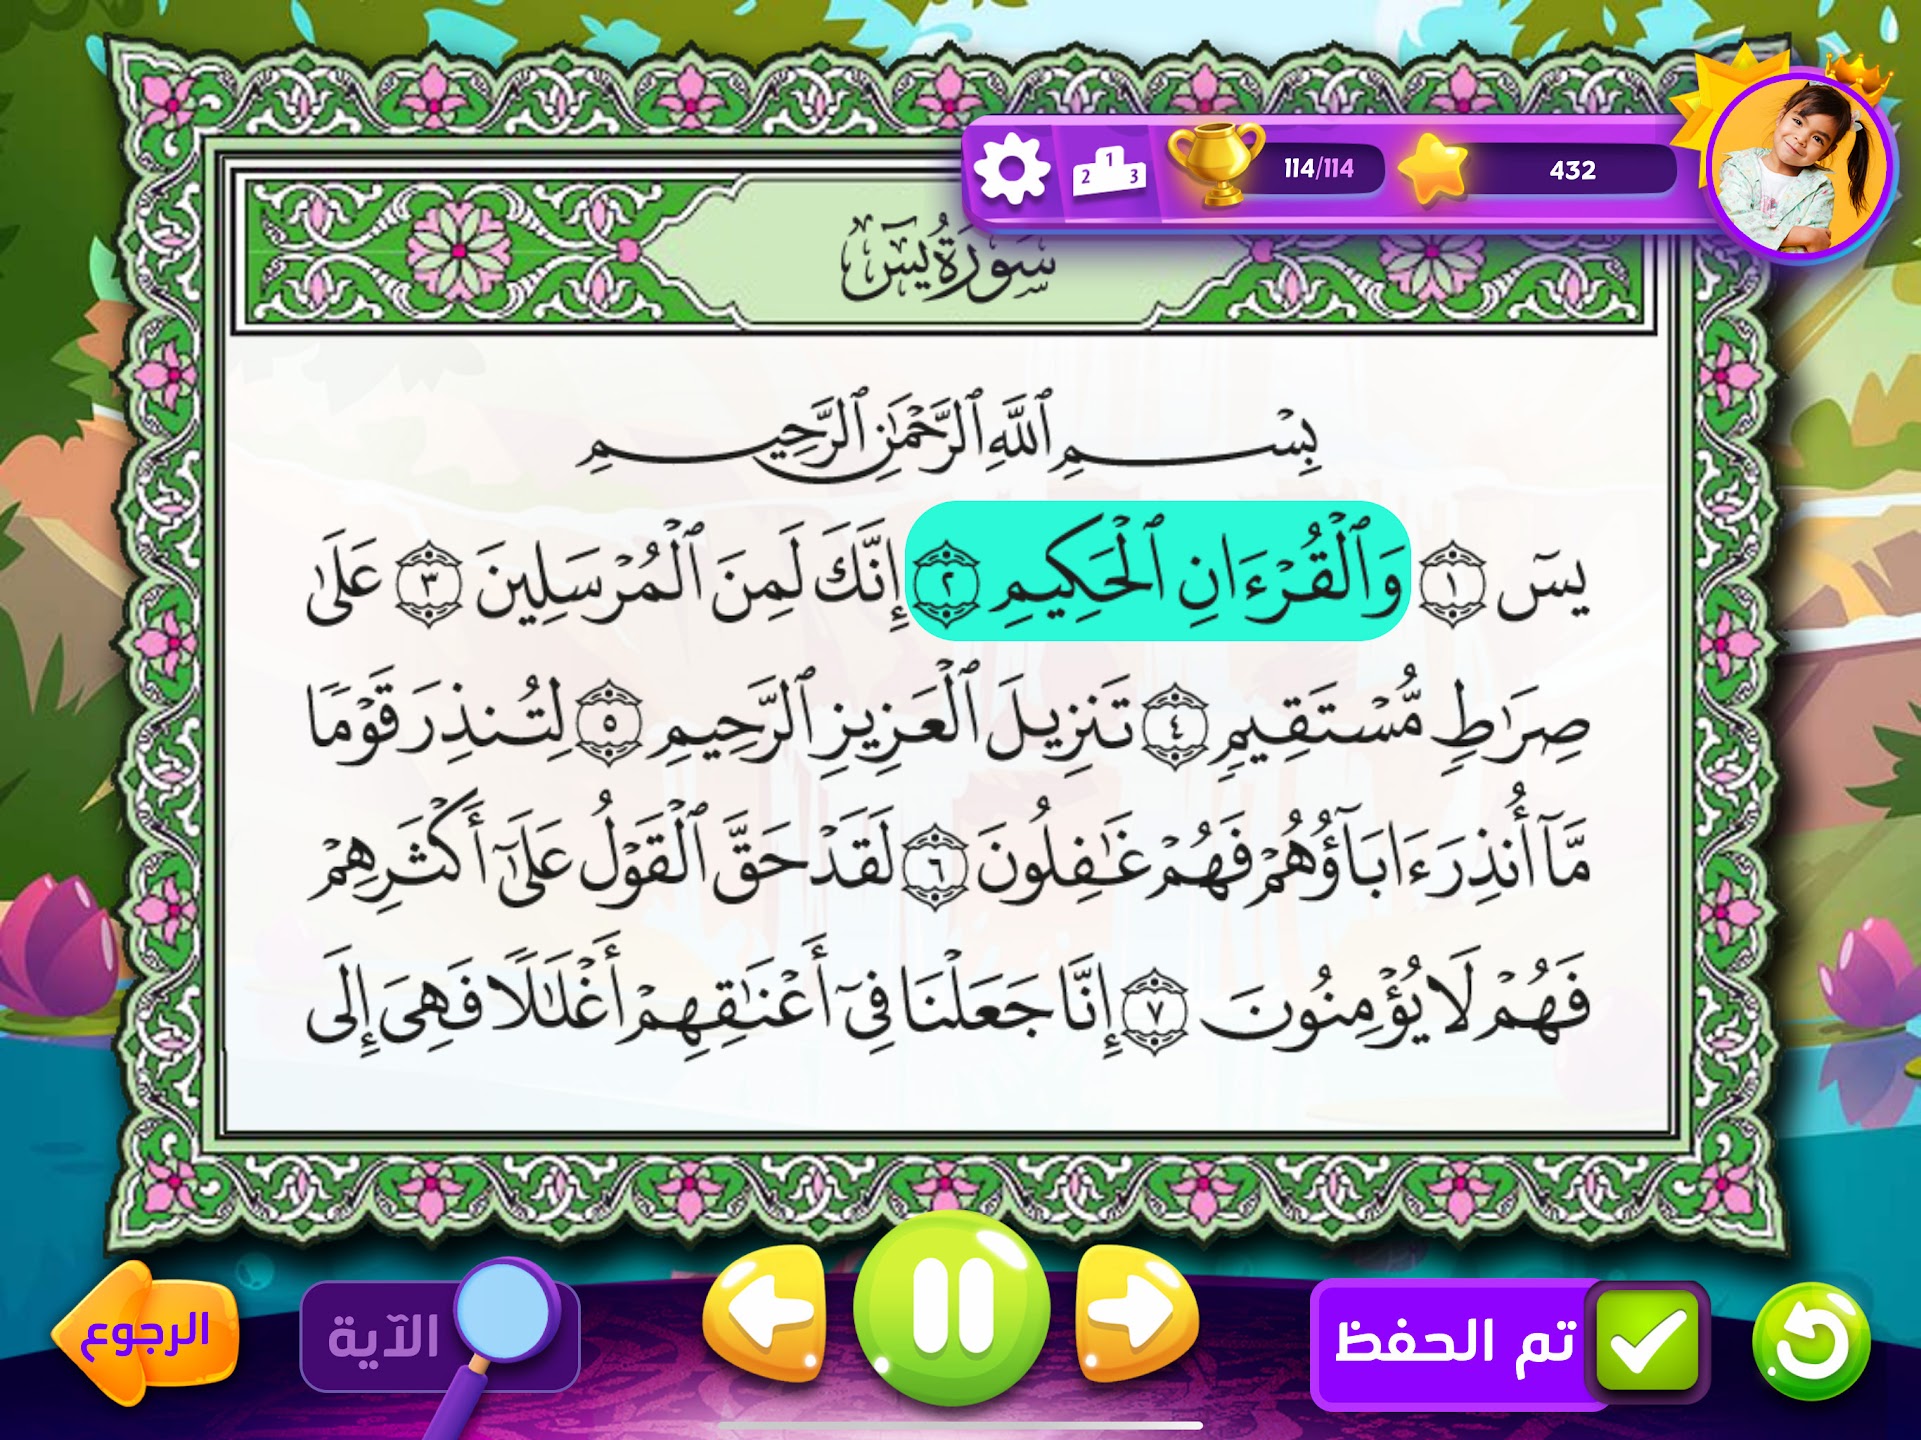 114/114
432
1
2 3
سُورَةُ يسٓ
بِسْمِ ٱللَّهِ ٱلرَّحْمَٰنِ ٱلرَّحِيمِ
يسٓ ١ وَٱلْقُرْءَانِ ٱلْحَكِيمِ ٢ إِنَّكَ لَمِنَ ٱلْمُرْسَلِينَ ٣ عَلَىٰ
صِرَٰطٍ مُّسْتَقِيمٍ ٤ تَنزِيلَ ٱلْعَزِيزِ ٱلرَّحِيمِ ٥ لِتُنذِرَ قَوْمًا
مَّآ أُنذِرَ ءَابَآؤُهُمْ فَهُمْ غَٰفِلُونَ ٦ لَقَدْ حَقَّ ٱلْقَوْلُ عَلَىٰٓ أَكْثَرِهِمْ
فَهُمْ لَا يُؤْمِنُونَ ٧ إِنَّا جَعَلْنَا فِىٓ أَعْنَٰقِهِمْ أَغْلَٰلًا فَهِىَ إِلَى
تم الحفظ
الآية
الرجوع